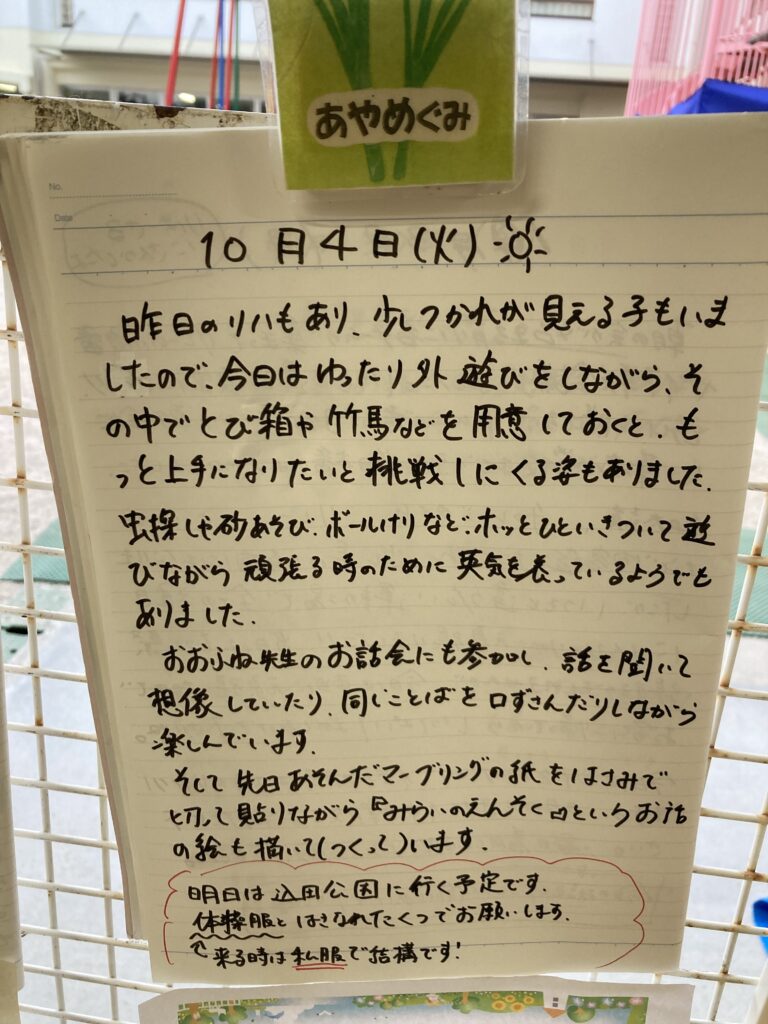 あやめぐみ
No.
Date
10月4日(火)
昨日のリハもあり、少しつかれが見える子もいま
したので、今日はゆったり外遊びをしながら、そ
の中でとび箱や竹馬などを用意しておくと、も
っと上手になりたいと挑戦しにくる姿もありました。
虫探しや砂あそび、ボールけりなど、ホッとひといきついて遊
びながら頑張る時のために英気を養っているようでも
ありました。
おおふね先生のお話会にも参加し、話を聞いて
想像していたり、同じことばを口ずさんだりしながら
楽しんでいます。
そして先日あそんだマーブリングの紙をはさみで
切って貼りながら『みらいのえんそく』というお話
の絵も描いて(つくって)います。
明日は込田公園に行く予定です。
体操服とはきなれたくつでお願いします。
来る時は私服で結構です!